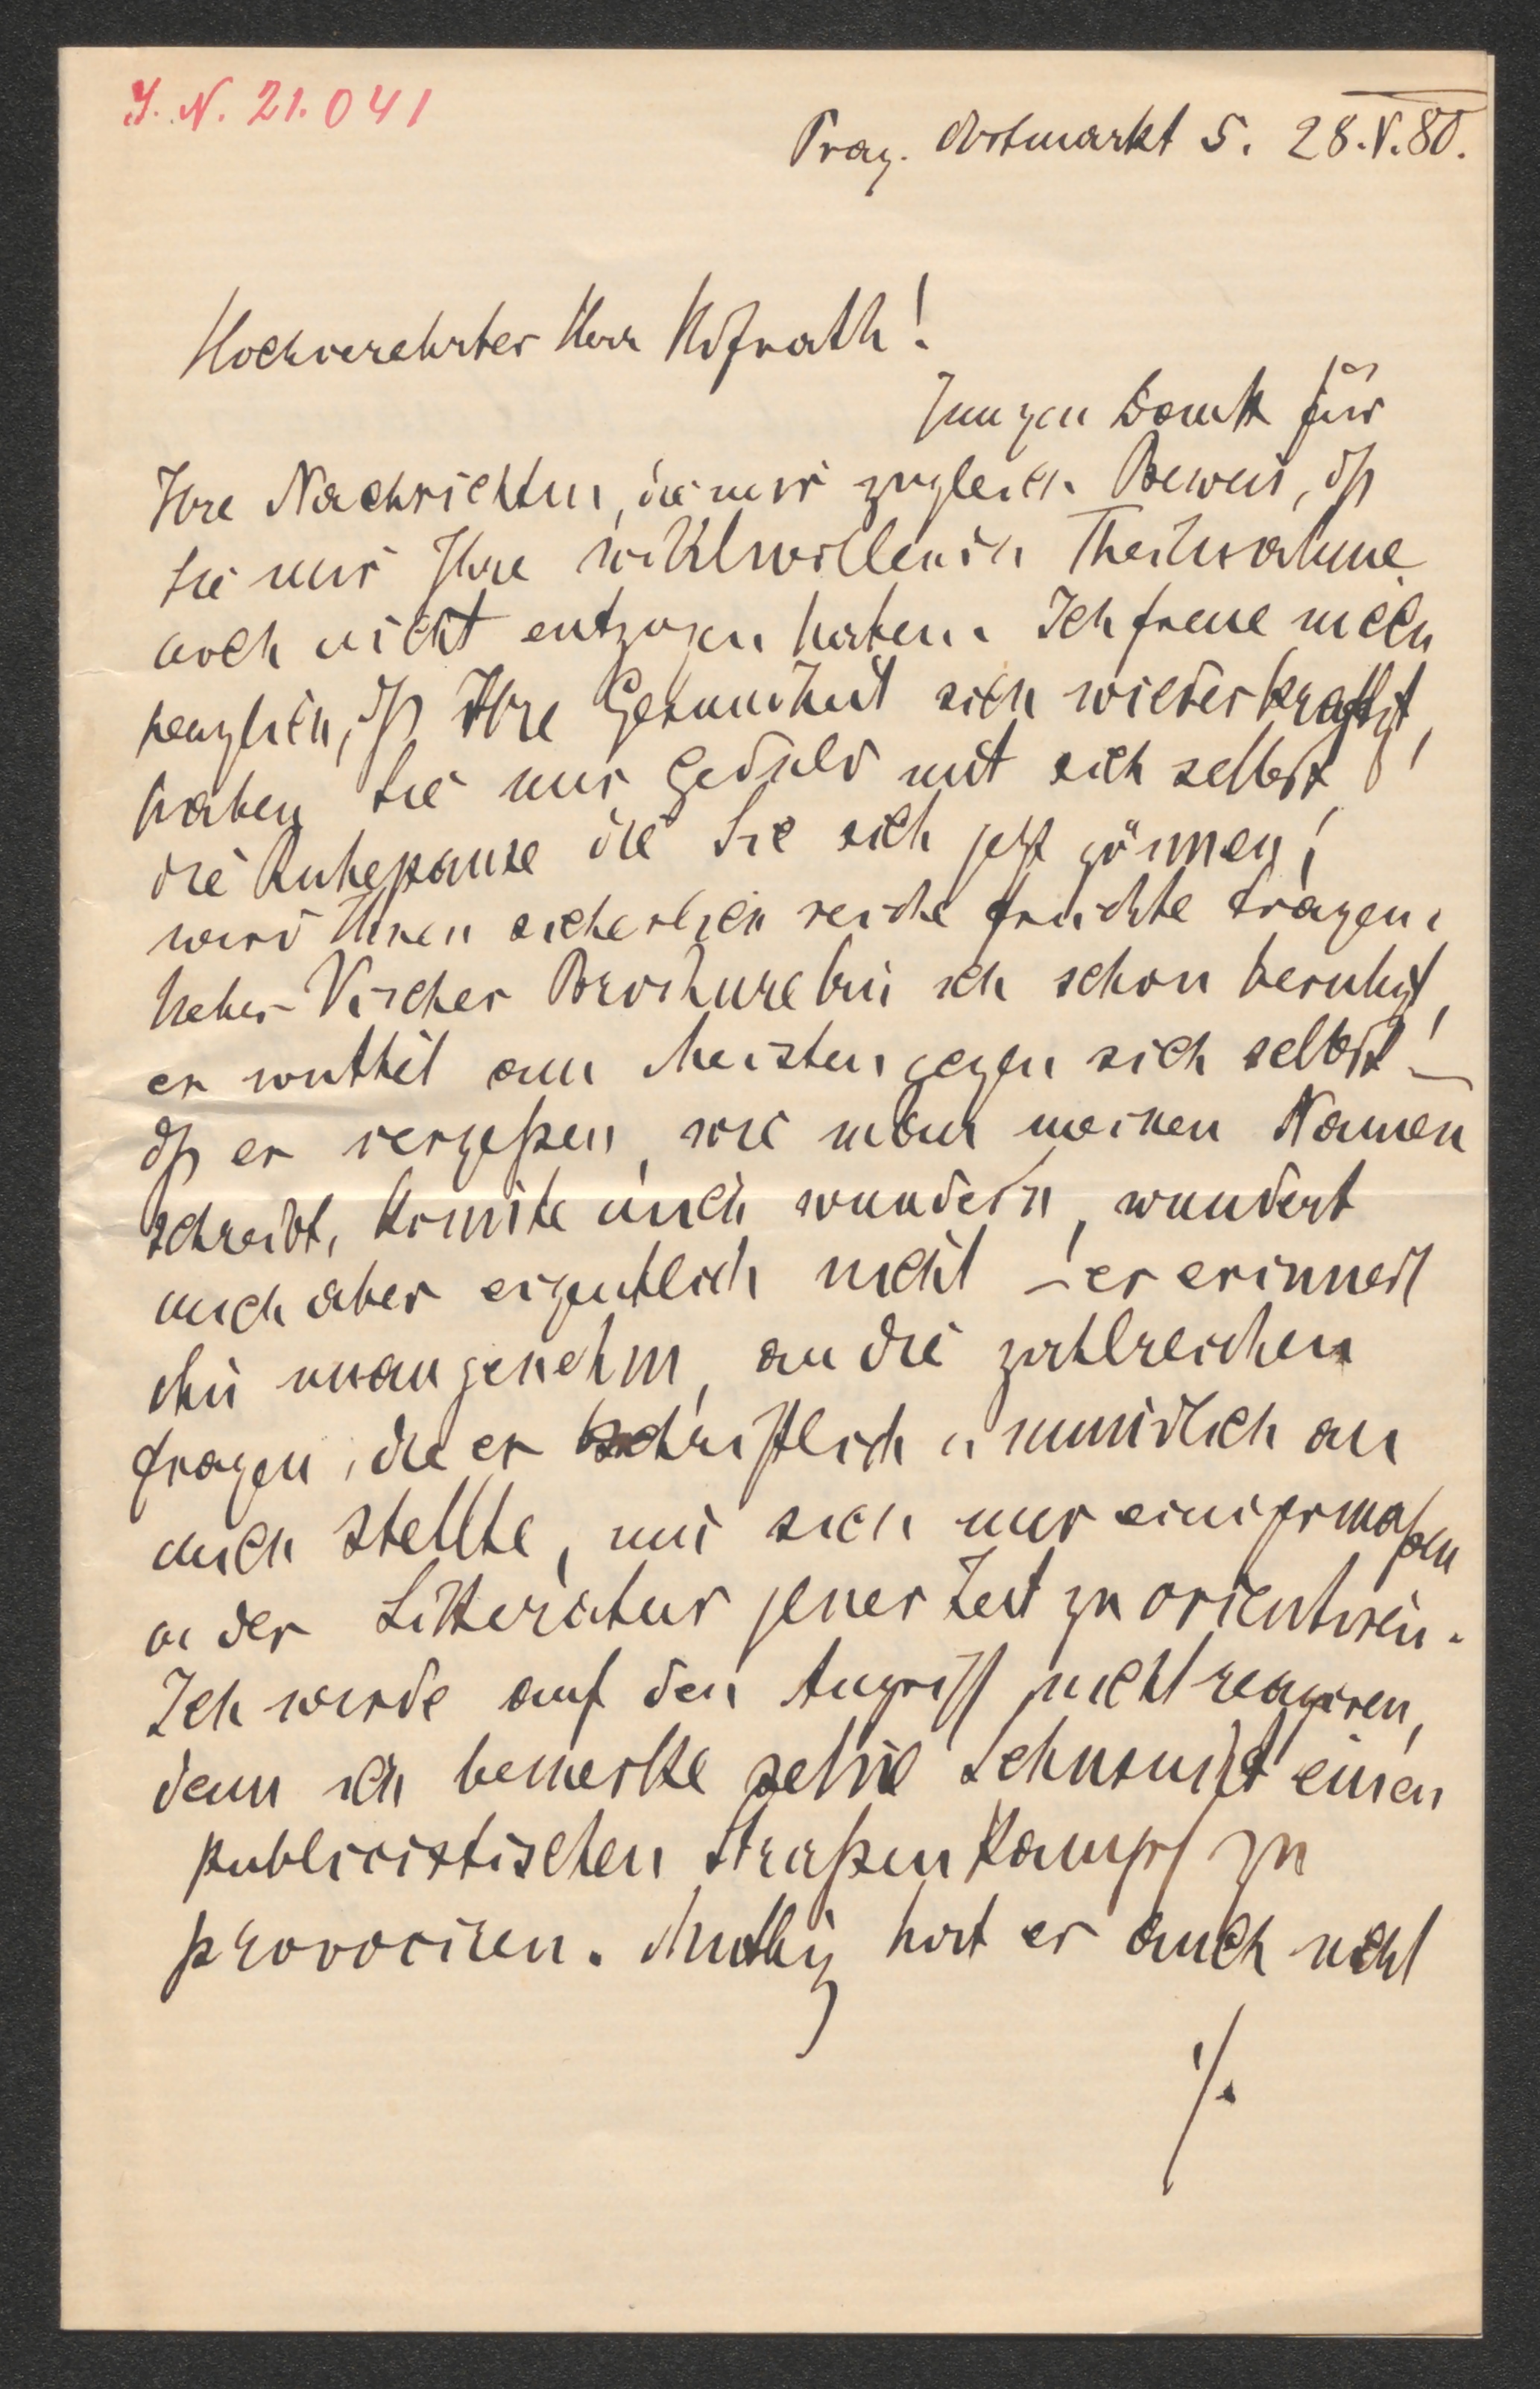 J. N. 21.041
Prag. Obstmarkt 5. 28.V.80.
Hochverehrter Herr Hofrath!
Innigen Dank für
Ihre Nachrichten, die mir zugleich Beweis, dß
Sie mir Ihre wohlwollende Theilnahme
noch nicht entzogen haben. Ich freue mich
herzlich, dß Ihre Gesundheit sich wieder kräftigt,
haben Sie nur Geduld mit sich selbst,
die Ruhepause die Sie sich jetzt gönnen,
wird Ihnen sicherlich reiche Früchte tragen.
Ueber Vischer Brochure bin ich schon beruhigt,
er wüthet am Meisten gegen sich selbst! –
dß er vergeßen, wie man meinen Namen
schreibt, könnte mich wundern, wundert
mich aber eigentlich nicht – er erinnert
ihn unangenehm, an die zahlreichen
Fragen, die er schriftlich u mündlich an
mich stellte, um sich nur einigermaßen
in der Litteratur jener Zeit zu orientiren.
Ich werde auf den Angriff nicht reagiren,
denn ich bemerke seine Sehnsucht einen
publicistischen Straßenkampf zu
provociren. Muthig hat er auch nicht
./.